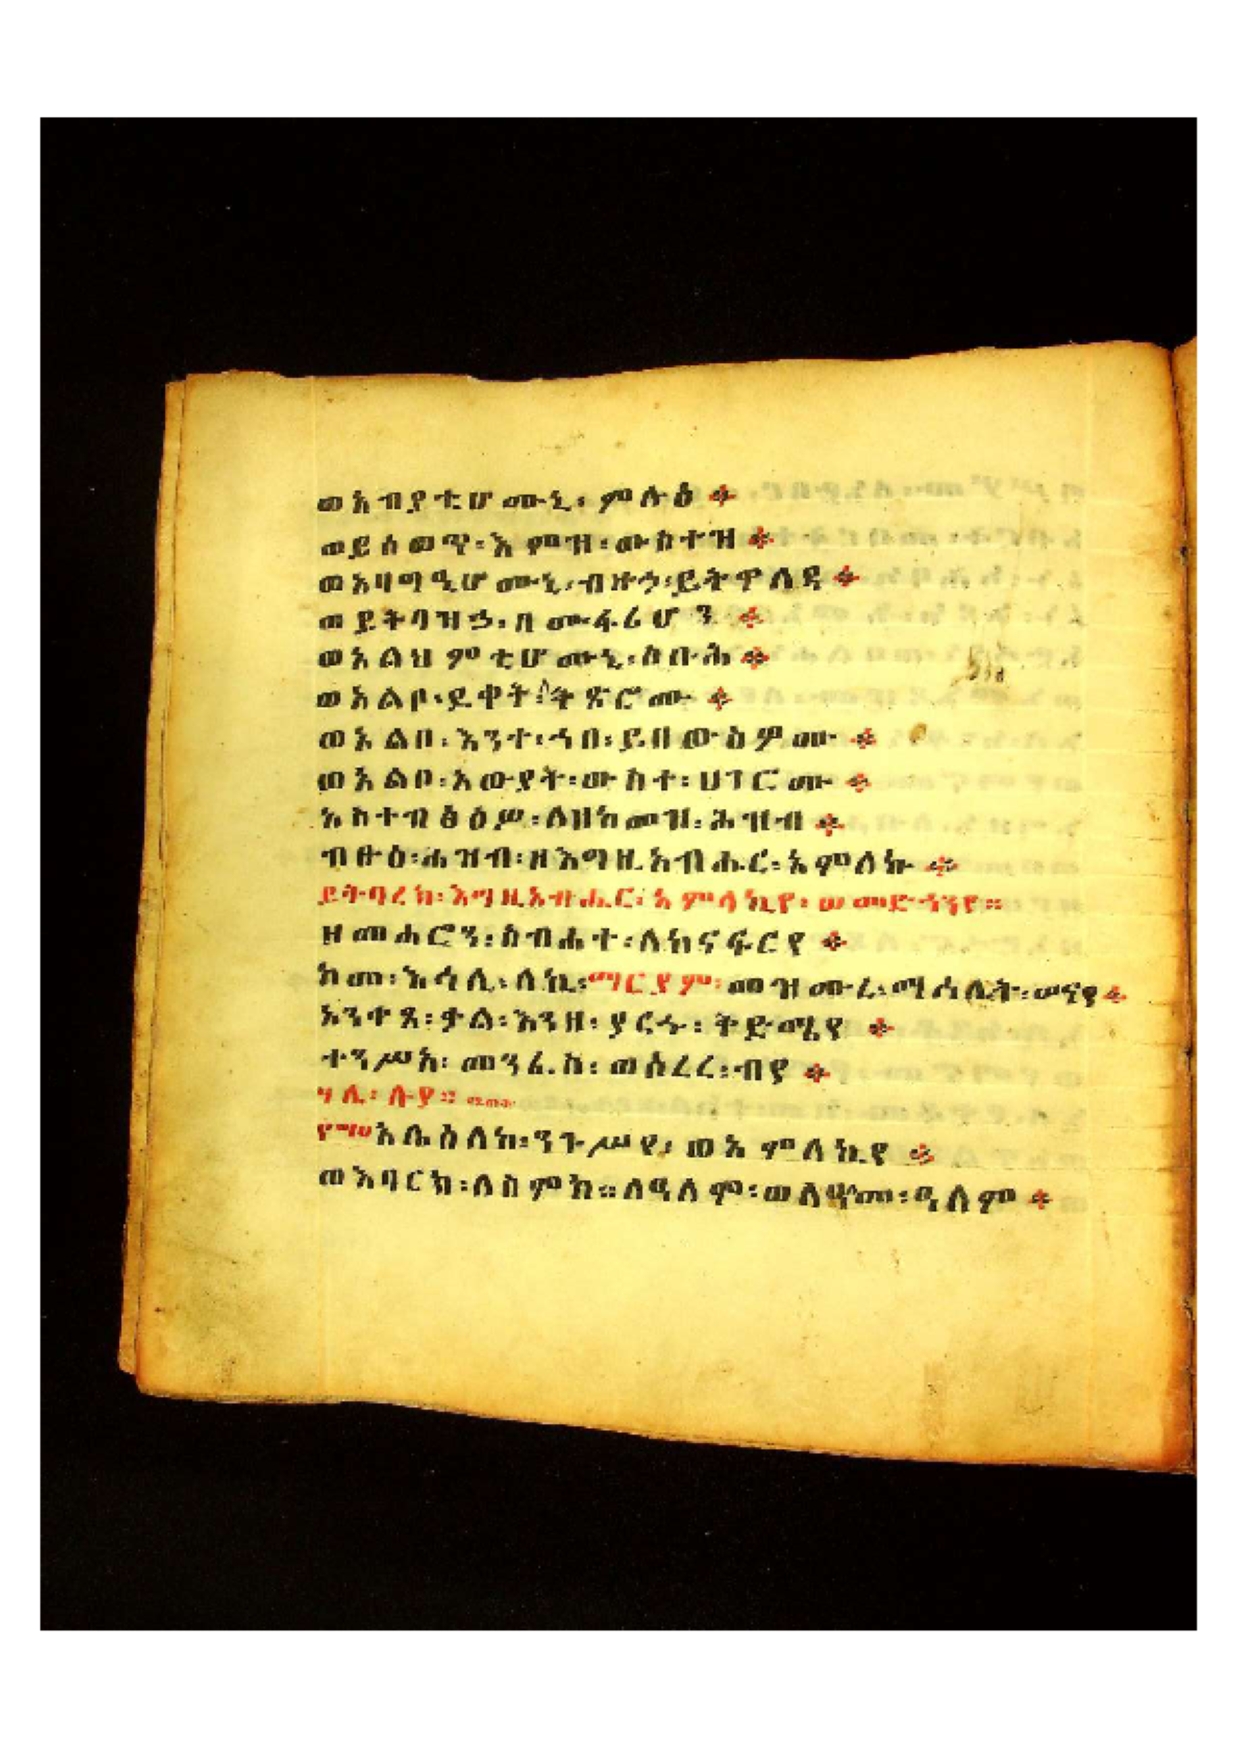 ወአብያቲሆሙኒ፡ምሉዕ፨
ወይሰወጥ፡እምዝ፡ውስተዝ፨
ወአባግዒሆሙኒ፡ብዙኃ፡ይትዋለዳ፨
ወይትባዝኃ፡በሙፋሪሆን፨
ወአልህምቲሆሙኒ፡ስቡሕ፨
ወአልቦ፡ድቀት፡ትጽሮሙ፨
ወአልቦ፡እንተ፡ኀበ፡ይበውስዎሙ፨
ወአልቦ፡አውያት፡ውስተ፡ሀገሮሙ፨
አስተብፅዕሥ፡ለዘከመዝ፡ሕዝብ፨
ብፁዕ፡ሕዝብ፡ዘእግዚአብሔር፡አምላኩ፨
ይትባረክ፡እግዚአብሔር፡አምላኪየ፡ወመድኀንየ።
ዘመሐሮን፡ስብሐተ፡ለከናፍርየ፨
ከመ፡እኅሊ፡ለኪ፡ማርያም፡መዝሙረ፡ማኅሌት፡ሠናየ፨
አንተጸ፡ቃል፡እንዘ፡ያርኁ፡ትድሜየ፨
ተንሥአ፡መንፈስ፡ወሰረረ፡ብየ፨
ሃሌ፡ሉያ።
፻፵፬አሌዕለከ፡ንጉሥየ፡ወአምላኪየ፨
ወእባርክ፡ለስምከ።ለዓለም፡ወለዓለመ፡ዓለም፨